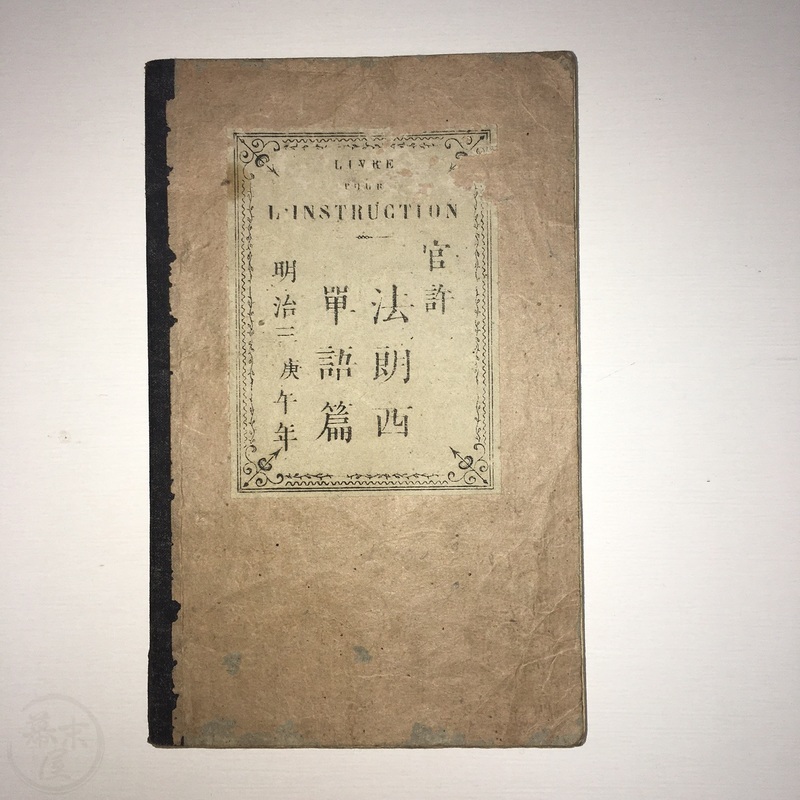 LIVRE
POUR
L'INSTRUCTION
官許
法朗西
單語篇
明治三庚午年
幕末屋